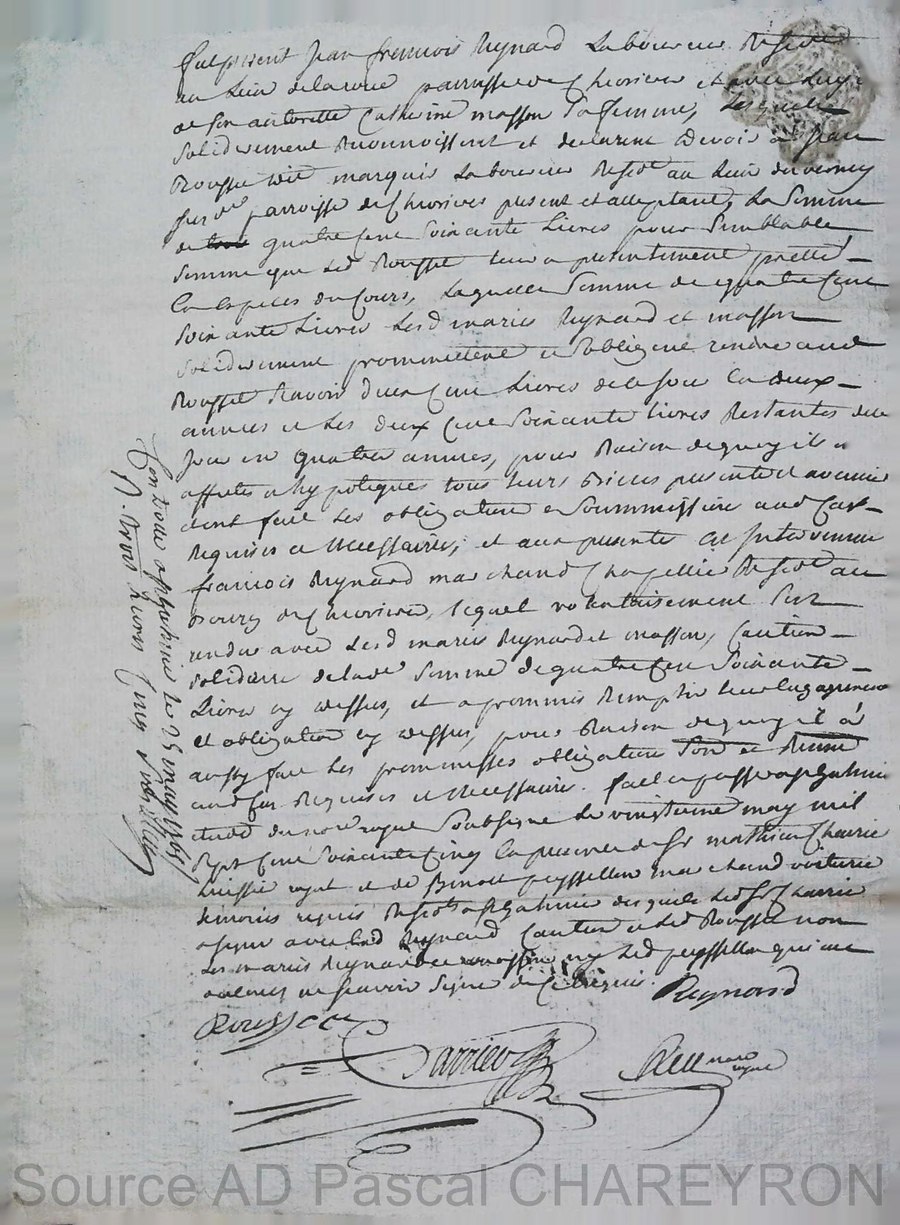 fut present Jean francois Reynard Laboureur Resid
au Lieu de parroisse de Chevrieres et avec luy
de son autorité Catherine masson Sa femme, Lesquels
Solidairement Reconnoissent et declarent Devoir a Jean
Rousset dit marquis Laboureur Resid au Lieu du verney
susd parroisse de Chevrieres present et acceptant, La Somme
de quatre Cent Soixante Livres pour Semblable
Somme que Led Rousset leur a presentement presté
En Especes du Cours, Laquelle Somme de quatre Cent
Soixante Livres Lesd mariés Reynard et masson
Solidairement promettent et Sobligent rendre aud
Rousset Scavoir deux Cent Livres de ce jour En deux
années et Les deux Cent Soixante Livres Restantes de ce
Jour en quatre années, pour Raison de quoy ils
affectés et hypotequés tous leurs Biens presents et avenir
dont fait Les obligations Soummissions aud Cas
Requises et Necessaires, et aux presentes est Intervenu
francois Reynard marchand Resid au
Bourg de Chevrieres, Lequel volontairement Sest
rendu avec Lesd mariés Reynard et masson, Caution
Solidaire de lad Somme de quatre Cent Soixante
Livres cy dessus, et a promis Remplir leur Engagement
et obligation cy dessus, pour Raison de quoy il a
aussy fait Les promesses obligations
aud Cas Requises et Necessaires. fait et passé a
etude du no.re royal Soubsigné Le vingtieme may mil
Sept Cent Soixante Cinq En presence de Sr mathieu
huissier royal et de Benoit peyssellon marchand voiturier
temoins requis Resid a desquels Led Sr
a Signé avec Led Reynard Caution et Led Rousset non
Les mariés Reynard et masson ny Led peyssellon qui ont
declaré ne Scavoir Signer de Ce Requis.
Reynard
Rousset
no.re
royal
Controlé a le 25 may 1765
R. trois Livres Cinq sols
Source AD Pascal CHAREYRON